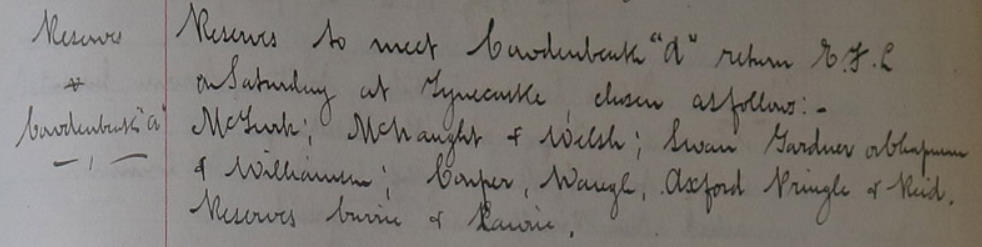 Reserves
v
Cowdenbeath "A"
Reserves to meet Cowdenbeath "A" return E.F.L
on Saturday at Tynecastle, chosen as follows:-
McTurk; McNaught & Welsh; Swan Gardner or Chapman
& Williamson; Couper, Waugh, Axford Pringle & Reid.
Reserves Currie & Lawrie.